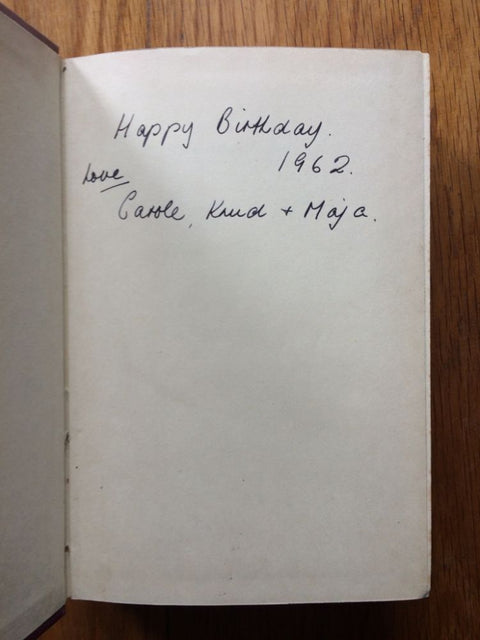 Happy Birthday.
1962.
Love
Carole, Knud + Maja.